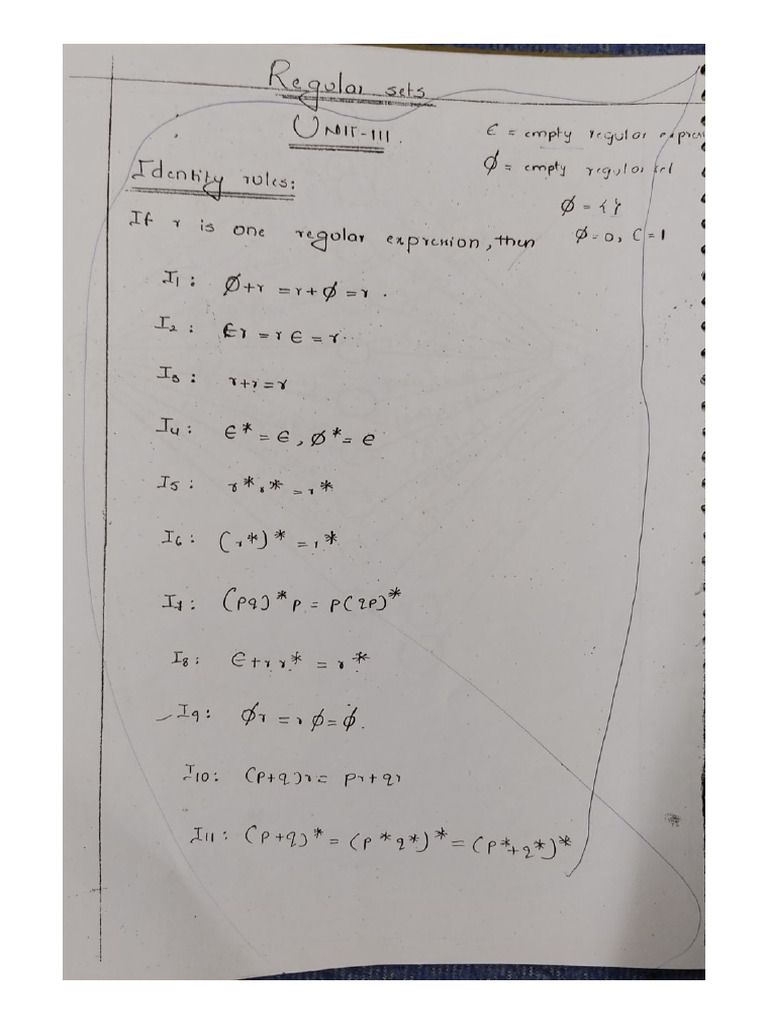 Regular sets
UNIT-III.
ϵ = empty regular expren
Ø = empty regular set
Ø = { }
Ø = 0, ϵ = 1
Identity rules:
If r is one regular expression, then
I1: Ø+r = r+Ø = r.
I2: ϵr = rϵ = r.
I3: r+r = r
I4: ϵ* = ϵ, Ø* = e
I5: r*r* = r*
I6: (r*)* = r*
I7: (pq)*p = p(qp)*
I8: ϵ+rr* = r*
I9: Ør = rØ = Ø.
I10: (p+q)r = pr+qr
I11: (p+q)* = (p*q*)* = (p*+q*)*